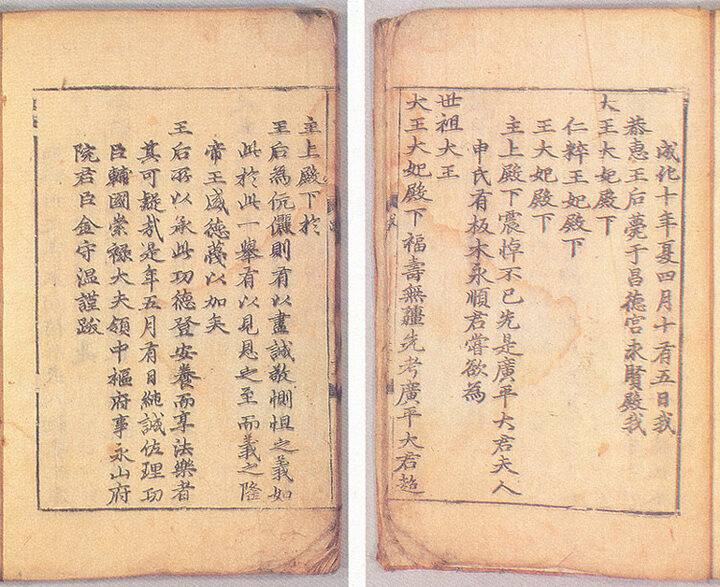 成化十年夏四月十有五日我
恭惠王后薨于昌德宮求賢殿我
大王大妃殿下
仁粹王妃殿下
王大妃殿下
主上殿下震悼不已先是廣平大君夫人
申氏有板木永順君嘗欲爲
世祖大王
大王大妃殿下福壽無疆先考廣平大君超
主上殿下於
王后為伉儷則有以盡誠敬惻怛之義如
此於此一舉有以見恩之至而義之隆
帝王盛德蔑以加矣
王后所以承此功德登安養而享法樂者
其可疑哉是年五月有日純誠佐理功
臣輔國崇祿大夫領中樞府事永山府
院君臣金守溫謹跋